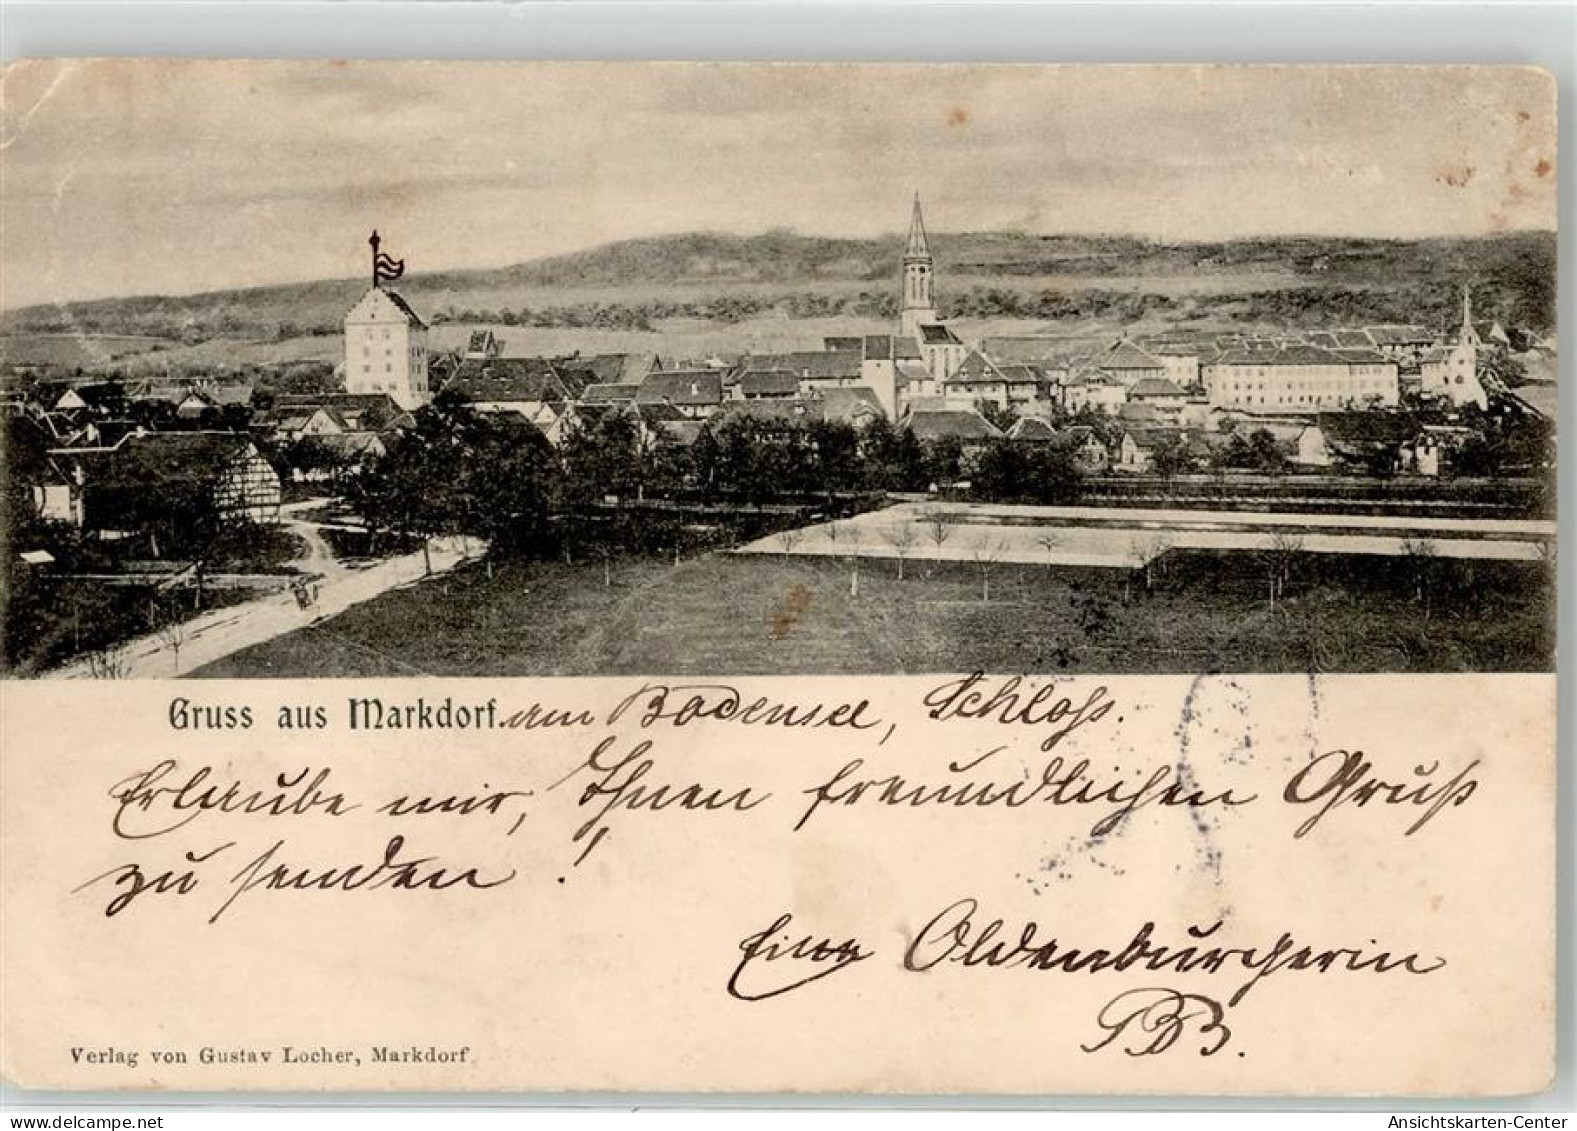 Gruss aus Markdorf. am Bodensee, Schloß.
Erlaube mir, Ihnen freundlichen Gruß
zu senden !
Eine Oldenburgerin
BB.
Verlag von Gustav Locher, Markdorf
www.delcampe.net
Ansichtskarten-Center